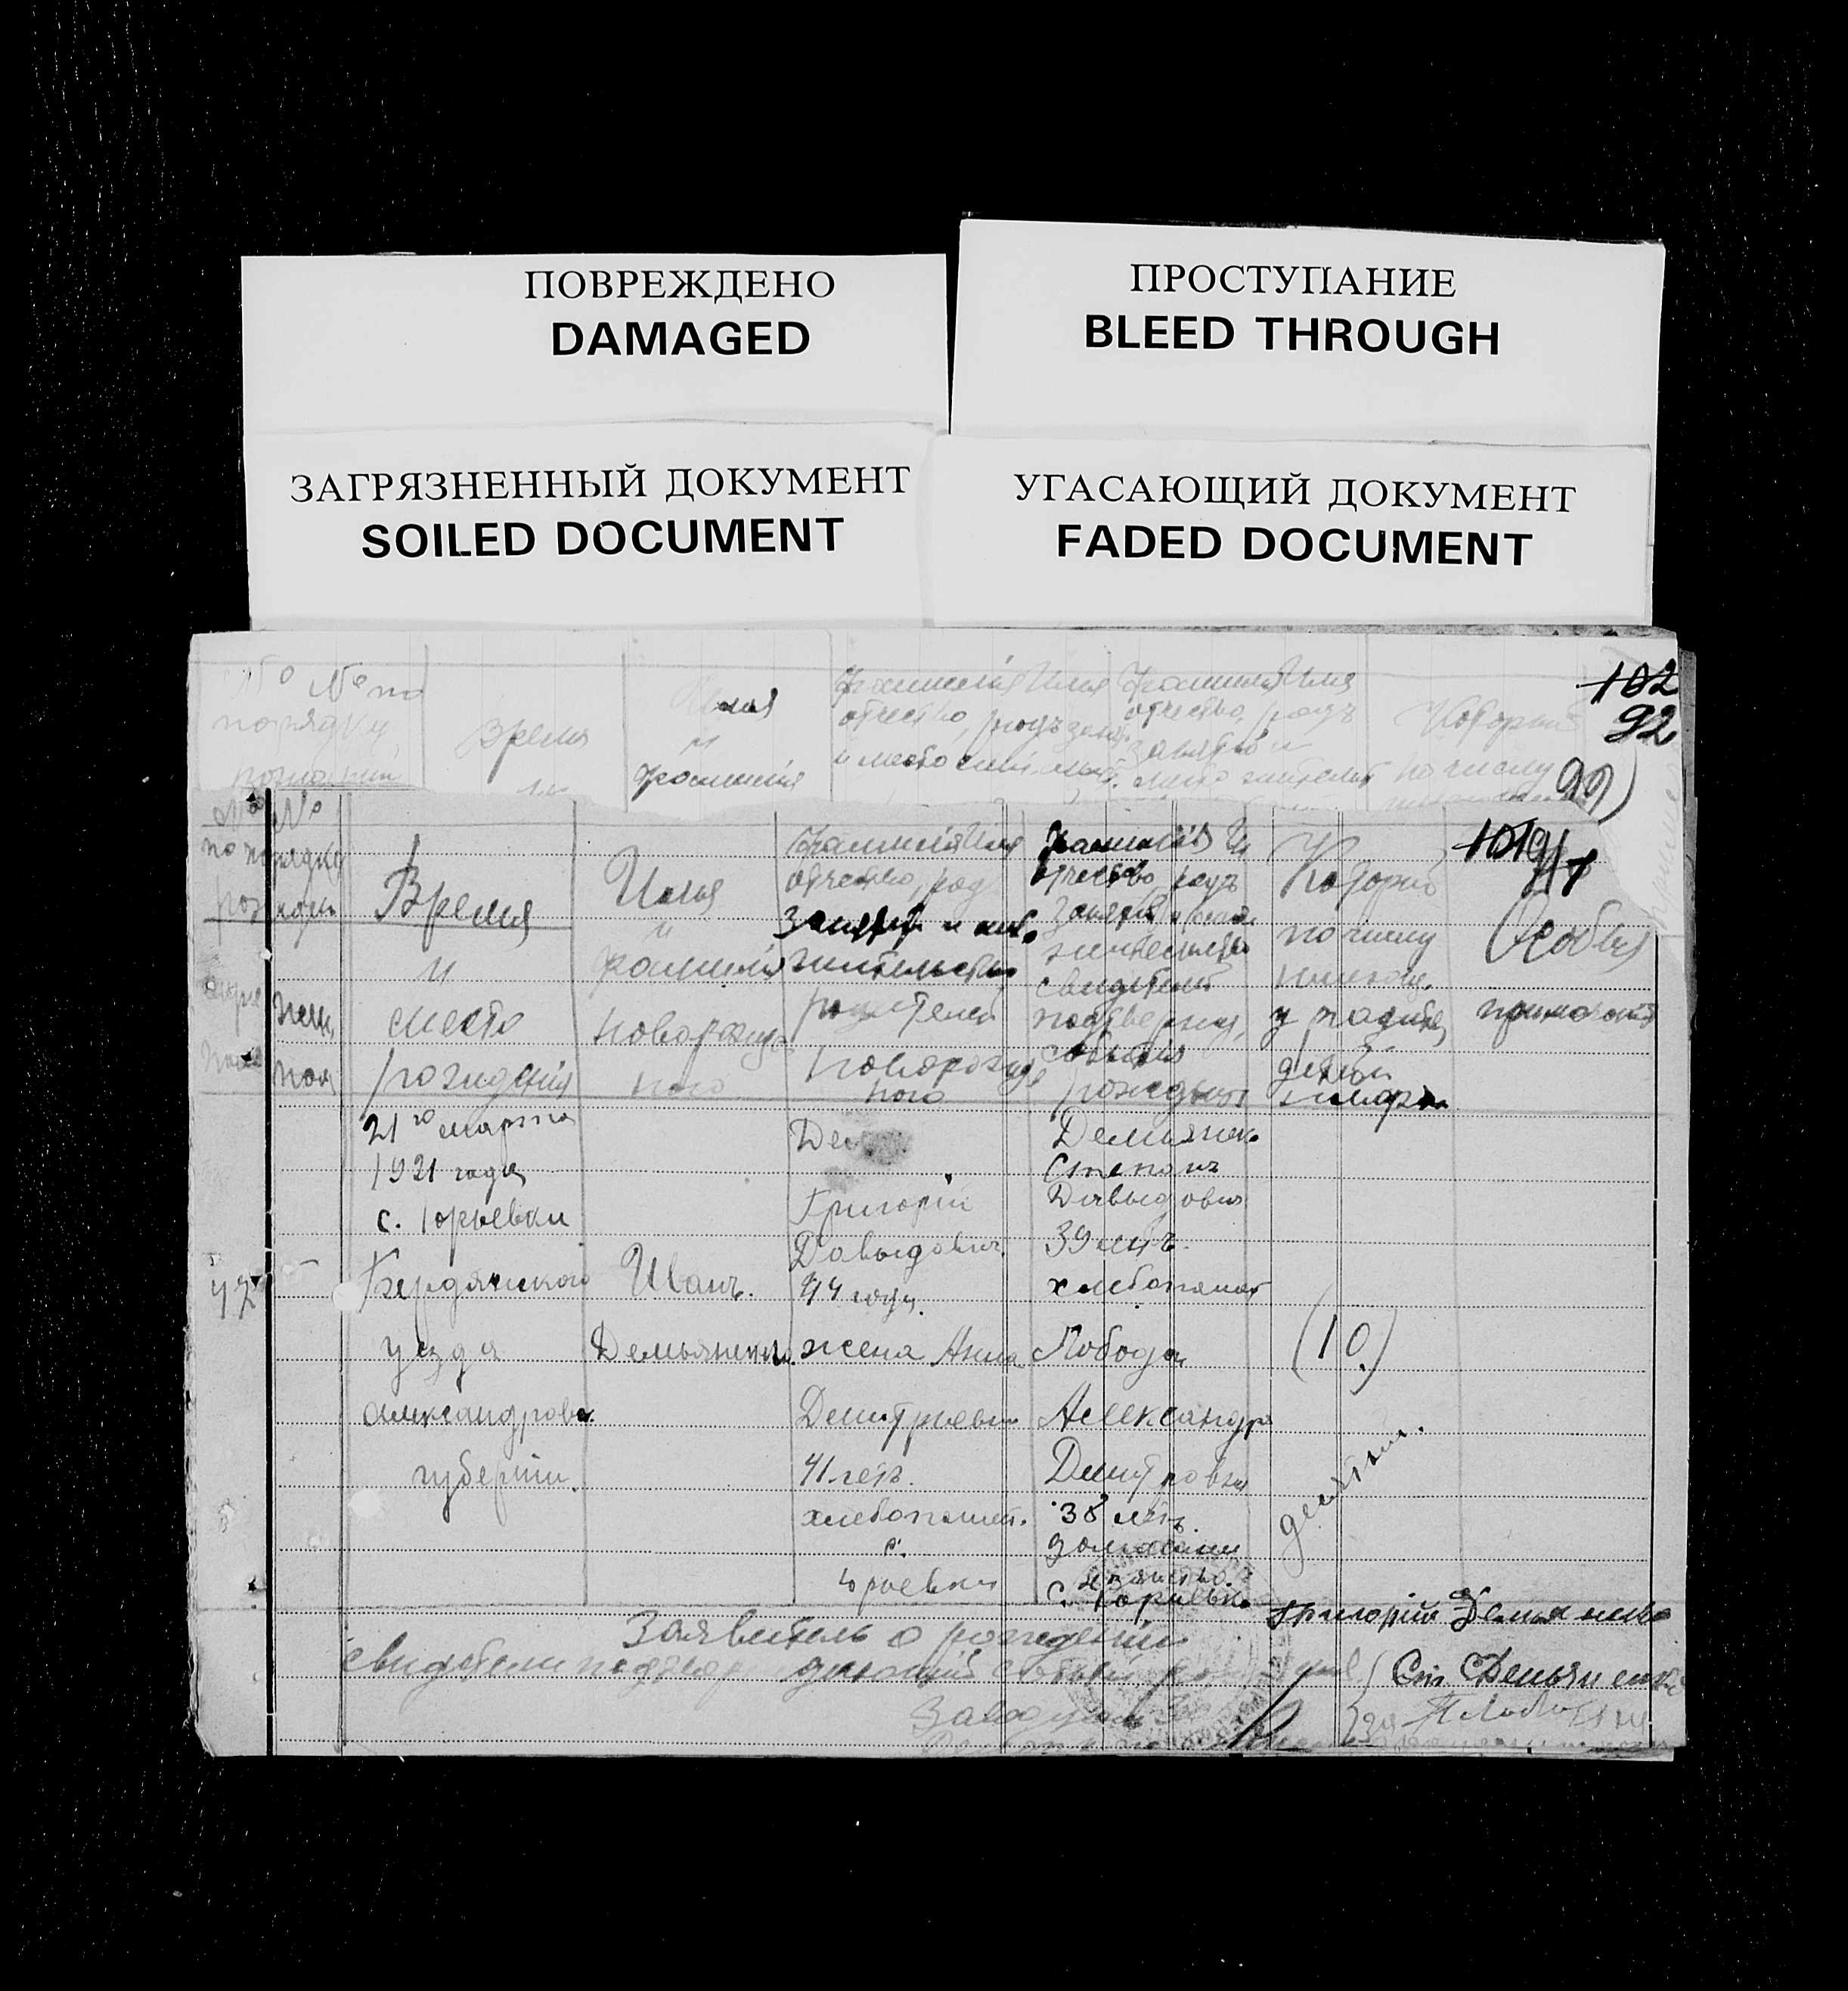 ПОВРЕЖДЕНО
DAMAGED
ПРОСТУПАНИЕ
BLEED THROUGH
ЗАГРЯЗНЕННЫЙ ДОКУМЕНТ
SOILED DOCUMENT
УГАСАЮЩИЙ ДОКУМЕНТ
FADED DOCUMENT
102
92
№ по
порядку
Время
Имя
и
фамилия
Фамилия Имя
отчество, родъ
и место
Фамилия Имя
отчество, родъ
занятий и
Который
по числу
99)
№ №
по порядку
жен.
пол
Время
и
место
рождения
Имя
и
фамилия
новорожден
ного
Фамилия Имя
отчество, род
занятий и
жительства
родителей
новорожде
ного
Фамилия И
отчество, родъ
занятия и
жительства
свидетел
подтвержд.
события
рождения
Который
по числу
у родите
детей
1019/1
Особыя
примечания
21го марта
1921 года
с. Юрьевки
Бердянского
уезда
Александровс.
губернии.
42
Иванъ.
Демьяненко.
Де
Григорий
Давыдович.
44 года.
жена Анна
Дмитриевна
41 летъ.
хлебопашец.
с.
Юрьевки
Демьяненко
Степанъ
Давыдович
39 летъ.
хлебопашец
Лобода
Александра
Дмитровна
38 летъ.
домашни
хозяйство.
с. Юрьевка
(10)
десятый.
Заявитель о рождении
Григорий Демьяненко
свидетели подтвер дающий события
Сте Демьяненко
Заведующий
за